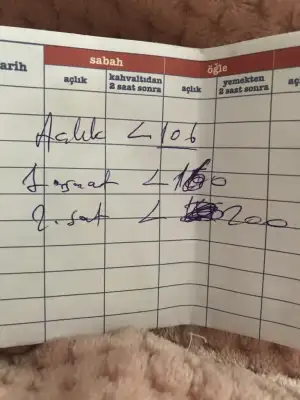 arih sabah öğle
açlık kahvaltıdan 2 saat sonra açlık yemekten 2 saat sonra aç
Açlık < 106
1. saat <
2. saat < 200